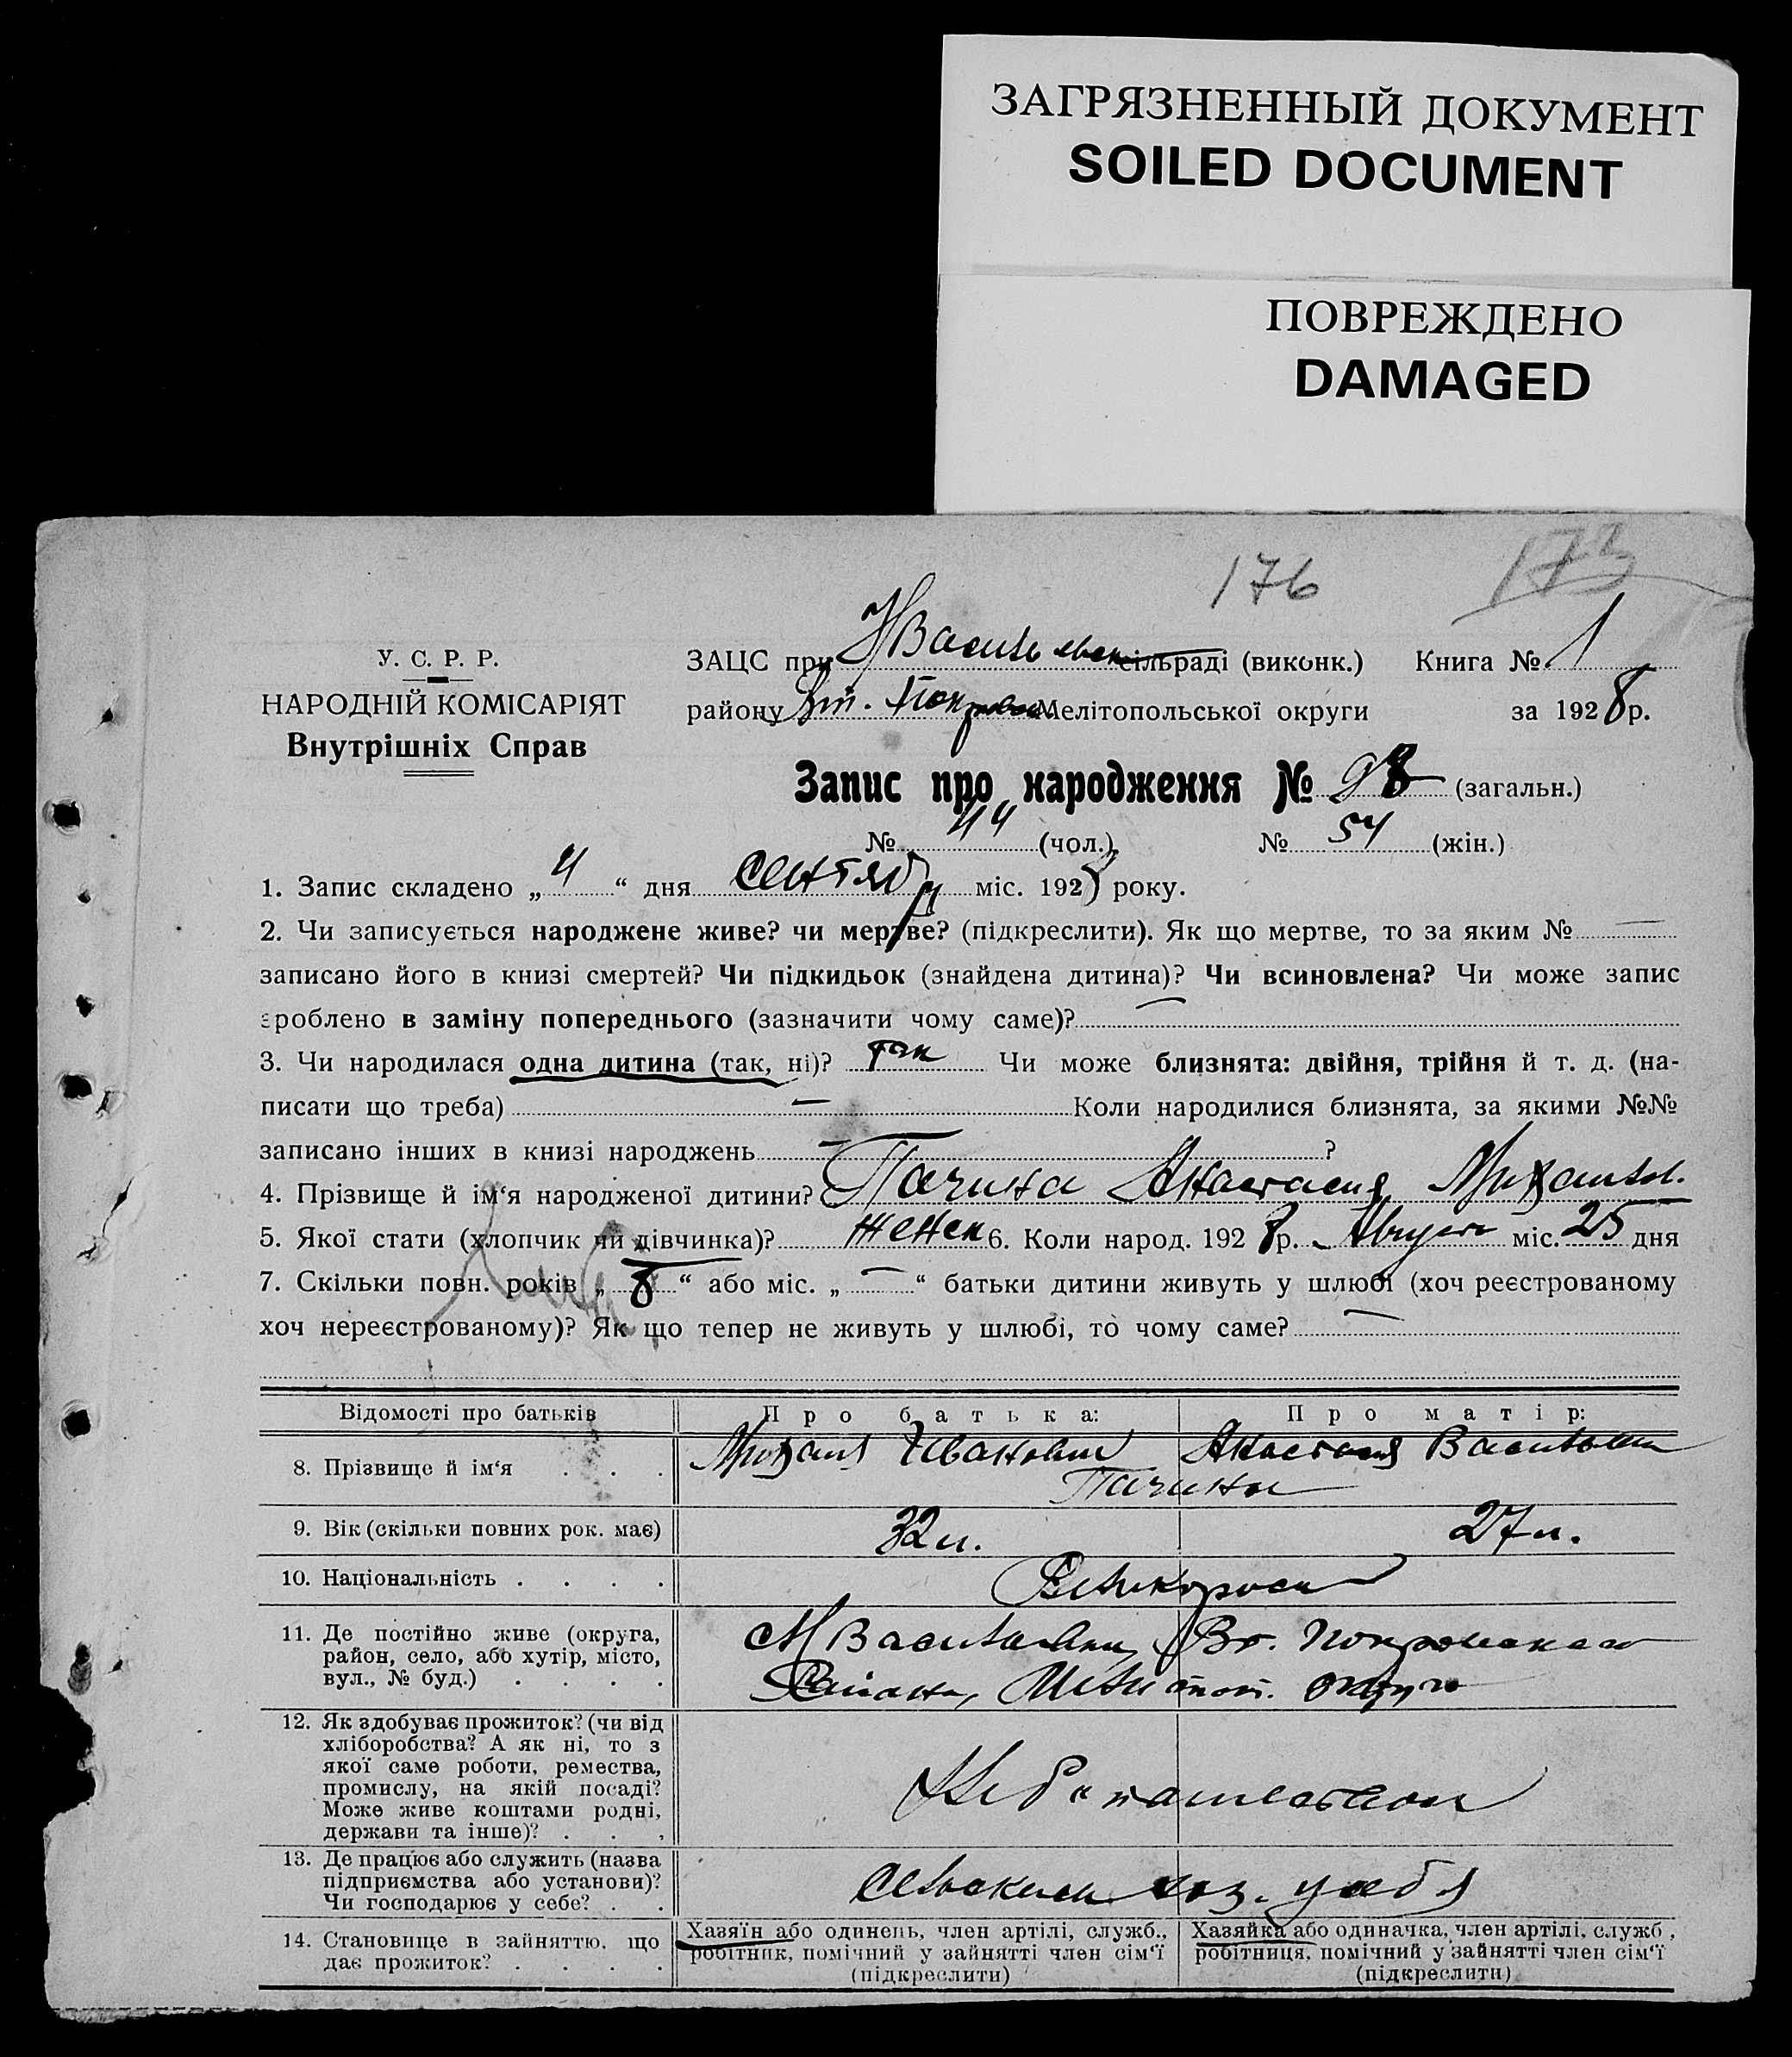 ЗАГРЯЗНЕННЫЙ ДОКУМЕНТ
SOILED DOCUMENT
ПОВРЕЖДЕНО
DAMAGED
176
173
У. С. Р. Р.
НАРОДНІЙ КОМІСАРІЯТ
Внутрішніх Справ
ЗАЦС при НВасильевск сільраді (виконк.) Книга № 1
району Вт. Покровск Мелітопольської округи за 1928 р.
Запис про народження № 98 (загальн.)
№ 44 (чол.) № 54 (жін.)
1. Запис складено „ 4 “ дня Сентября міс. 1928 року.
2. Чи записується народжене живе? чи мертве? (підкреслити). Як що мертве, то за яким № —
записано його в книзі смертей? Чи підкидьок (знайдена дитина)? Чи всиновлена? Чи може запис
зроблено в заміну попереднього (зазначити чому саме)? —
3. Чи народилася одна дитина (так, ні)? так Чи може близнята: двійня, трійня й т. д. (на-
писати що треба) — Коли народилися близнята, за якими №№
записано інших в книзі народжень — ?
4. Прізвище й ім‘я народженої дитини? Пачина Анастасия Михайлов.
5. Якої стати (хлопчик чи дівчинка)? женск 6. Коли народ. 1928 р. Августа міс. 25 дня
7. Скільки повн. років „ 8 “ або міс. „ — “ батьки дитини живуть у шлюбі (хоч реєстрованому
хоч нереєстрованому)? Як що тепер не живуть у шлюбі, то чому саме? —
Відомості про батьків Про батька: Про матір:
8. Прізвище й ім‘я . . . Михаил Иванович Анастасия Васильевна
Пачины
9. Вік (скільки повних рок. має) 32 л. 27 л.
10. Національність . . . . Великоросы
11. Де постійно живе (округа,
район, село, або хутір, місто,
вул., № буд.) . . . .
НВасильевки Вт. Покровского
Района, Мелитоп. округа
12. Як здобуває прожиток? (чи від
хліборобства? А як ні, то з
якої саме роботи, ремества,
промислу, на якій посаді?
Може живе коштами родні,
держави та інше)? . . .
Хлебопашеством
13. Де працює або служить (назва
підприємства або установи)?
Чи господарює у себе? . .
Сельским хоз. у себя
14. Становище в зайняттю, що
дає прожиток? . . . .
Хазяїн або одинець, член артілі, служб.,
робітник, помічний у зайнятті член сім‘ї
(підкреслити)
Хазяйка або одиначка, член артілі, служб.,
робітниця, помічний у зайнятті член сім‘ї
(підкреслити)